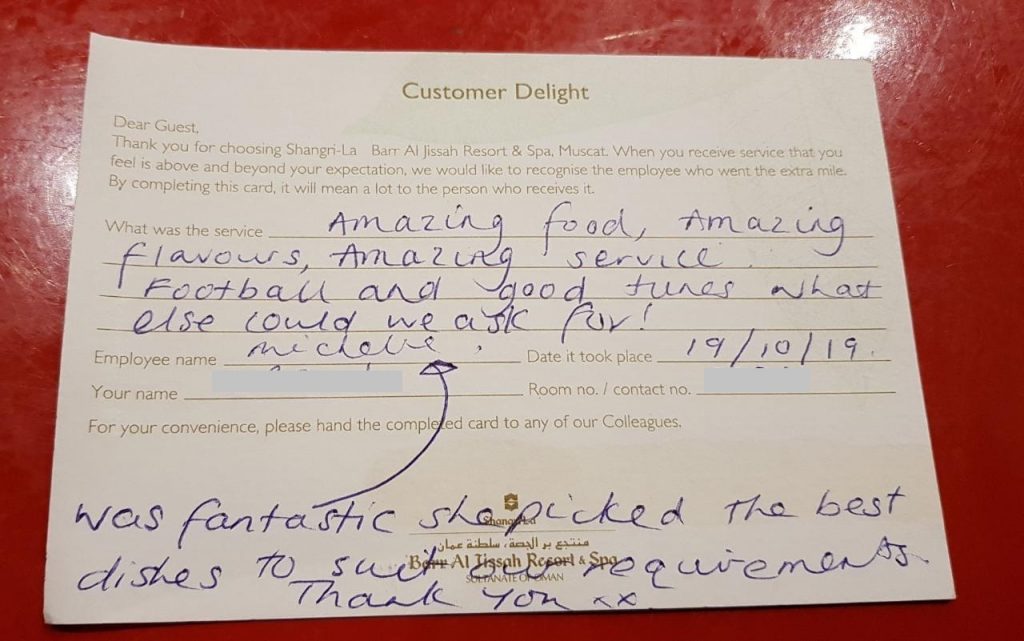 Customer Delight
Dear Guest,
Thank you for choosing Shangri-La Barr Al Jissah Resort & Spa, Muscat. When you receive service that you
feel is above and beyond your expectation, we would like to recognise the employee who went the extra mile.
By completing this card, it will mean a lot to the person who receives it.
What was the service Amazing food, Amazing
flavours, Amazing service.
Football and good tunes what
else could we ask for!
Employee name michelle. Date it took place 19/10/19.
Your name Room no. / contact no.
For your convenience, please hand the completed card to any of our Colleagues.
was fantastic she picked the best
Shangri-La
منتجع بر الجصة، سلطنة عمان
Barr Al Jissah Resort & Spa
dishes to suit our requirements.
SULTANATE OF OMAN
Thank You xx